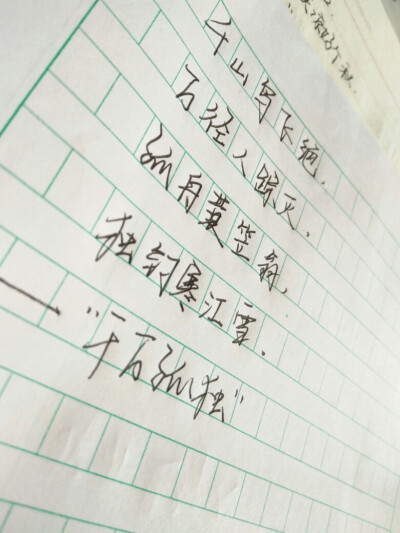 千山鸟飞绝,
万径人踪灭.
孤舟蓑笠翁,
独钓寒江雪.
——"千万孤独"